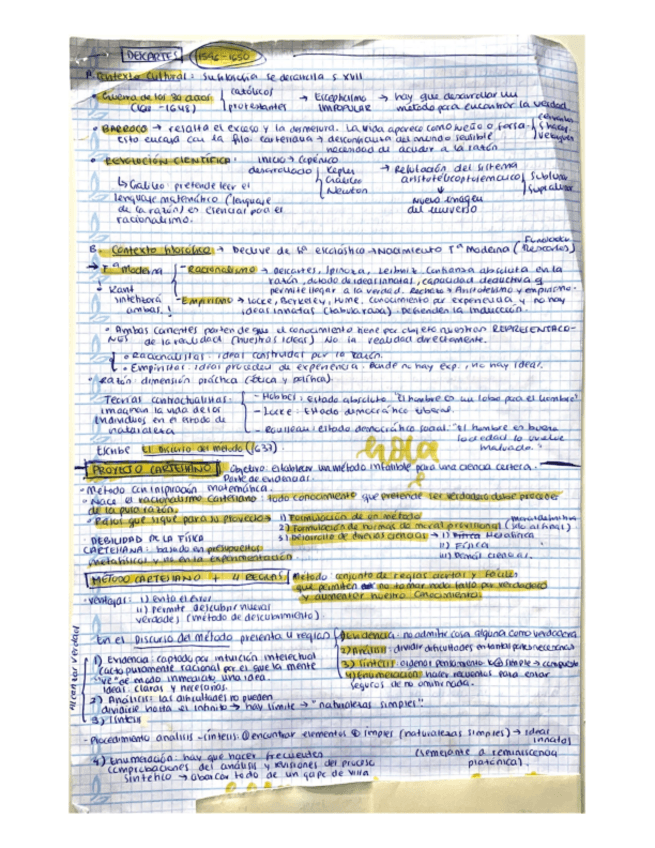 DESCARTES (1596-1650)
A. Contexto Cultural: Su filosofía se desarrolla S XVII
• Guerra de los 30 años { católicos → Escepticismo → hay que desarrollar un
(1618-1648) protestantes IMPOPULAR método para encontrar la verdad
• BARROCO → resalta el exceso y la desmesura. La vida aparece como sueño o farsa.
Esto encaja con la filo. cartesiana → desconfianza del mundo sensible
necesidad de acudir a la razón
• REVOLUCIÓN CIENTÍFICA: inicio → Copérnico
desarrollado { Kepler → Refutación del sistema
Galileo aristotélicoptolemaico { Sublunar
Newton Supralunar
↳ Galileo: pretende leer el
lenguaje matemático (lenguaje → nueva imagen
de la razón) es esencial para el del universo
racionalismo.
B. Contexto filosófico → Declive de la escolástica → Nacimiento Fª Moderna (Fundador Descartes)
→ Fª moderna { - Racionalismo → Descartes, Spinoza, Leibniz. Confianza absoluta en la
razón, dotado de ideas innatas, capacidad deductiva q
permite llegar a la verdad. Rechazo → Aristotelismo y empirismo.
• Kant
sintetizará
ambas.!
- Empirismo → Locke, Berkeley, Hume. Conocimiento por experiencia y no hay
ideas innatas (tabula rasa). Defienden la inducción.
• Ambas corrientes parten de que el conocimiento tiene por objeto nuestras REPRESENTACIO-
NES de la realidad (nuestras ideas). No la realidad directamente.
• Racionalistas: ideas construidas por la razón.
• Empiristas: ideas proceden de experiencia. Donde no hay exp., no hay ideas.
• Razón: dimensión práctica (ética y política).
Teorías contractualistas: { - Hobbes: estado absoluto "El hombre es un lobo para el hombre"
imaginan la vida de los - Locke: Estado democrático liberal.
individuos en el estado de - Rousseau: estado democrático social: "El hombre es bueno
naturaleza la sociedad lo vuelve
malvado."
Escribe El Discurso del método (1637).
hola
PROYECTO CARTESIANO Objetivo: establecer un método infalible para una ciencia certera.
Parte de evidencias.
• Método con inspiración matemática.
• Nace el racionalismo cartesiano: todo conocimiento que pretende ser verdadero debe proceder
de la pura razón.
• Pasos que sigue para su proyecto 1) Formulación de un método
2) Formulación de normas de moral provisional
3) Desarrollo de diversas ciencias → I) Metafísica
II) Física
III) Demás ciencias.
DEBILIDAD DE LA FÍSICA
CARTESIANA: basada en presupuestos
metafísicos y no en la experimentación
MÉTODO CARTESIANO + 4 REGLAS Método conjunto de reglas ciertas y fáciles
que permiten no tomar nada falso por verdadero
y aumentar nuestro conocimiento.
• Ventajas: I) evita el error
II) permite descubrir nuevas
verdades (método de descubrimiento)
En el Discurso del método presenta 4 reglas { 1) Evidencia: no admitir cosa alguna como verdadera.
2) Análisis: dividir dificultades en tantas partes necesarias
3) Síntesis: ordenar pensamiento simple → compuesto
4) Enumeración: hacer recuentos para estar
seguros de no omitir nada.
"Alcanzar verdad
1) Evidencia: captada por intuición intelectual
(acto puramente racional por el que la mente
"ve" de modo inmediato una idea.
Ideas claras y necesarias.
2) Análisis: las dificultades no pueden
dividirse hasta el infinito → hay límite → "naturalezas simples"
3) Síntesis
- Procedimiento análisis-síntesis: encontrar elementos simples (naturalezas simples) → ideas
innatas
(semejante a reminiscencia
platónica).
4) Enumeración: hay que hacer frecuentes
comprobaciones del análisis y revisiones del proceso
sintético → abarcar todo de un golpe de vista